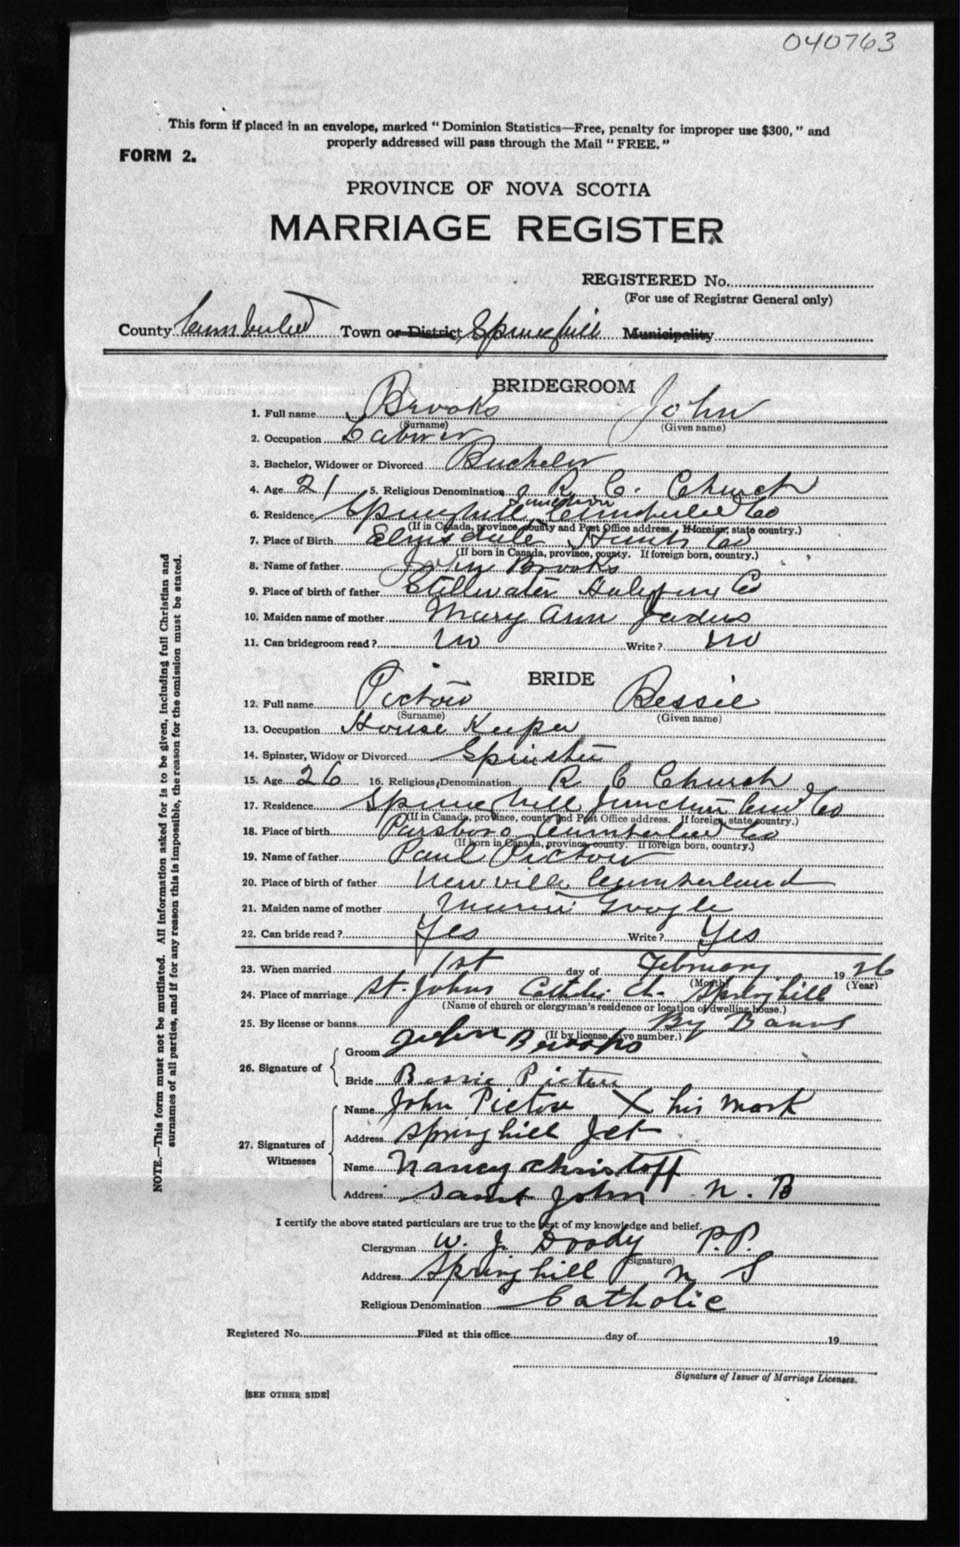 040763
This form if placed in an envelope, marked "Dominion Statistics—Free, penalty for improper use $300," and
properly addressed will pass through the Mail "FREE."
FORM 2.
PROVINCE OF NOVA SCOTIA
MARRIAGE REGISTER
REGISTERED No.
(For use of Registrar General only)
County Cumberland Town or District Springhill Municipality
BRIDEGROOM
1. Full name Brooks John
(Surname) (Given name)
2. Occupation Laborer
3. Bachelor, Widower or Divorced Bachelor
4. Age 21 5. Religious Denomination R. C. Church
6. Residence Springhill Junction Cumberland Co
(If in Canada, province, county and Post Office address. If foreign, state country.)
7. Place of Birth Elmsdale Hants Co
(If born in Canada, province, county. If foreign born, country.)
8. Name of father John Brooks
9. Place of birth of father Stillwater Halifax Co
10. Maiden name of mother Mary Ann
11. Can bridegroom read? No Write? No
BRIDE
12. Full name Pictou Bessie
(Surname) (Given name)
13. Occupation House Keeper
14. Spinster, Widow or Divorced Spinster
15. Age 26 16. Religious Denomination R C Church
17. Residence Springhill Junction Cum Co
(If in Canada, province, county and Post Office address. If foreign, state country.)
18. Place of birth Parsboro Cumberland Co
(If born in Canada, province, county. If foreign born, country.)
19. Name of father Paul Pictou
20. Place of birth of father Newville Cumberland
21. Maiden name of mother
22. Can bride read? Yes Write? Yes
23. When married 1st day of February 1926
(Month) (Year)
24. Place of marriage St. Johns Ch. Springhill
(Name of church or clergyman's residence or location of dwelling house.)
25. By license or banns By Banns
(If by license, give number.)
26. Signature of
Groom John Brooks
Bride Bessie Pictou
27. Signatures of Witnesses
Name John Pictou X his mark
Address Springhill Jct
Name Nancy Christoff
Address Saint John N. B
I certify the above stated particulars are true to the best of my knowledge and belief.
Clergyman W. J. Doody P.P.
(Signature)
Address Springhill N S
Religious Denomination Catholic
Registered No. Filed at this office day of 19
Signature of Issuer of Marriage Licenses.
[SEE OTHER SIDE]
NOTE.—This form must not be mutilated. All information asked for is to be given, including full Christian and
surnames of all parties, and if for any reason this is impossible, the reason for the omission must be stated.